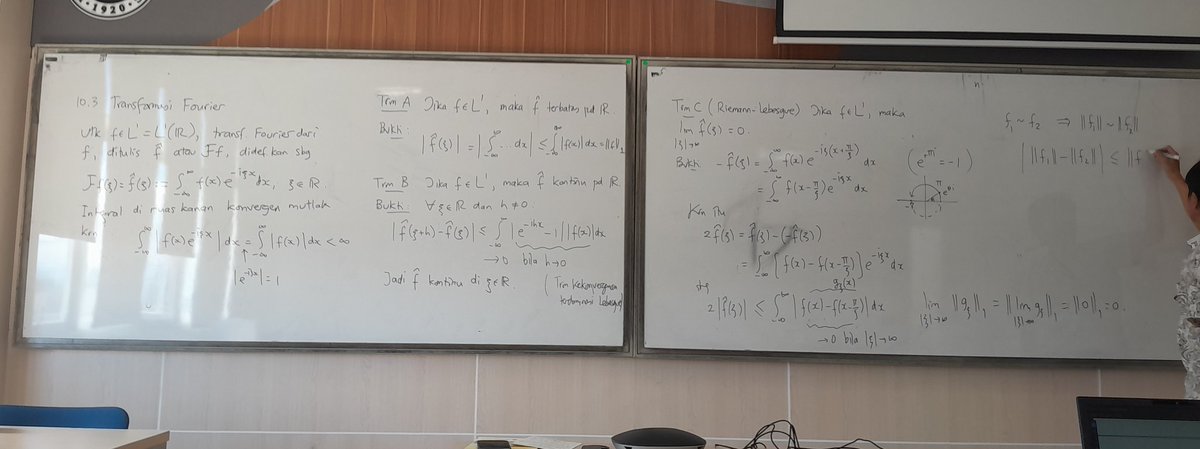 1920
10.3 Transformasi Fourier
Utk f ∈ L¹ = L¹(ℝ), transf Fourier dari
f, ditulis f̂ atau Ff, didef.kan sbg
Ff(ξ) = f̂(ξ) := ∫_{-∞}^{∞} f(x) e^{-iξx} dx, ξ ∈ ℝ.
Integral di ruas kanan konvergen mutlak
krn
∫_{-∞}^{∞} |f(x) e^{-iξx}| dx = ∫_{-∞}^{∞} |f(x)| dx < ∞
↑
|e^{-iξx}| = 1
Trm A Jika f ∈ L¹, maka f̂ terbatas pd ℝ.
Bukti:
|f̂(ξ)| = |∫_{-∞}^{∞} ... dx| ≤ ∫_{-∞}^{∞} |f(x)| dx = ||f||₁
Trm B Jika f ∈ L¹, maka f̂ kontinu pd ℝ.
Bukti: ∀ξ ∈ ℝ dan h ≠ 0.
|f̂(ξ+h) - f̂(ξ)| ≤ ∫_{-∞}^{∞} |e^{-ihx} - 1| |f(x)| dx
→ 0 bila h → 0
Jadi f̂ kontinu di ξ ∈ ℝ.
(Trm Kekonvergenan
terdominasi Lebesgue)
Trm C (Riemann-Lebesgue) Jika f ∈ L¹, maka
lim_{|ξ|→∞} f̂(ξ) = 0.
Bukti. -f̂(ξ) = ∫_{-∞}^{∞} f(x) e^{-iξ(x+π/ξ)} dx
= ∫_{-∞}^{∞} f(x-π/ξ) e^{-iξx} dx
(e^{πi} = -1)
Krn itu
2f̂(ξ) = f̂(ξ) - (-f̂(ξ))
= ∫_{-∞}^{∞} [f(x) - f(x-π/ξ)] e^{-iξx} dx
g_ξ(x)
shg
2|f̂(ξ)| ≤ ∫_{-∞}^{∞} |f(x) - f(x-π/ξ)| dx
→ 0 bila |ξ| → ∞
f₁ ~ f₂ ⇒ ||f₁|| ~ ||f₂||
| ||f₁|| - ||f₂|| | ≤ ||f
lim_{|ξ|→∞} ||g_ξ||₁ = ||lim_{|ξ|→∞} g_ξ||₁ = ||0||₁ = 0.